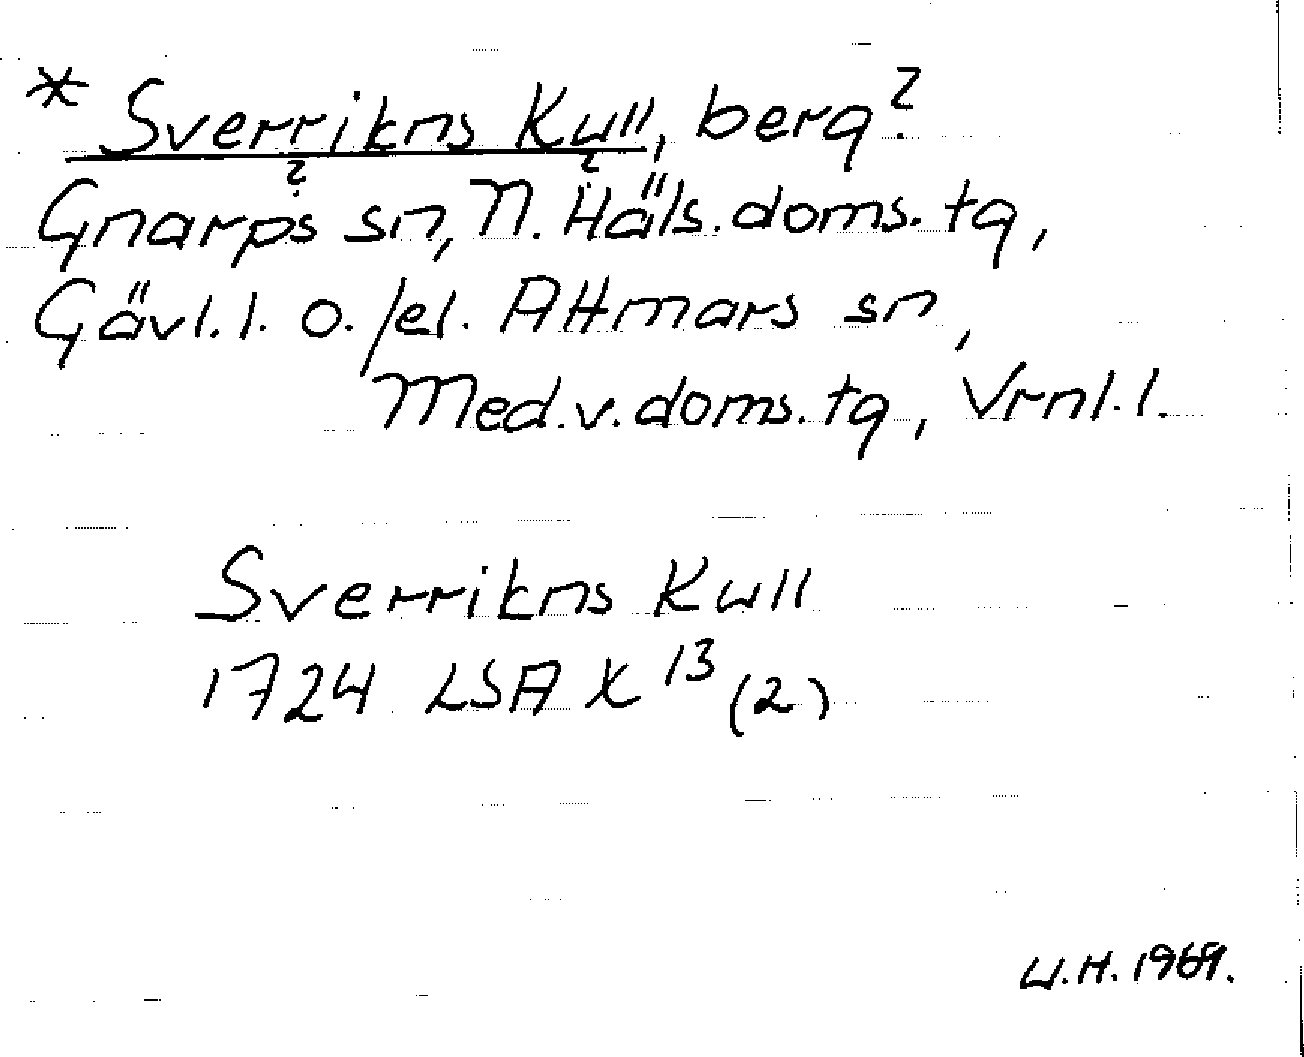 * Sverrikns Kull, berg?
? ?
Gnarps sn, N. Häls. doms. tg,
Gävl. l. o./el. Attmars sn,
Med. v. doms. tg, Vrnl. l.
Sverrikns Kull
1724 LSA X 13 (2)
U.H. 1969.